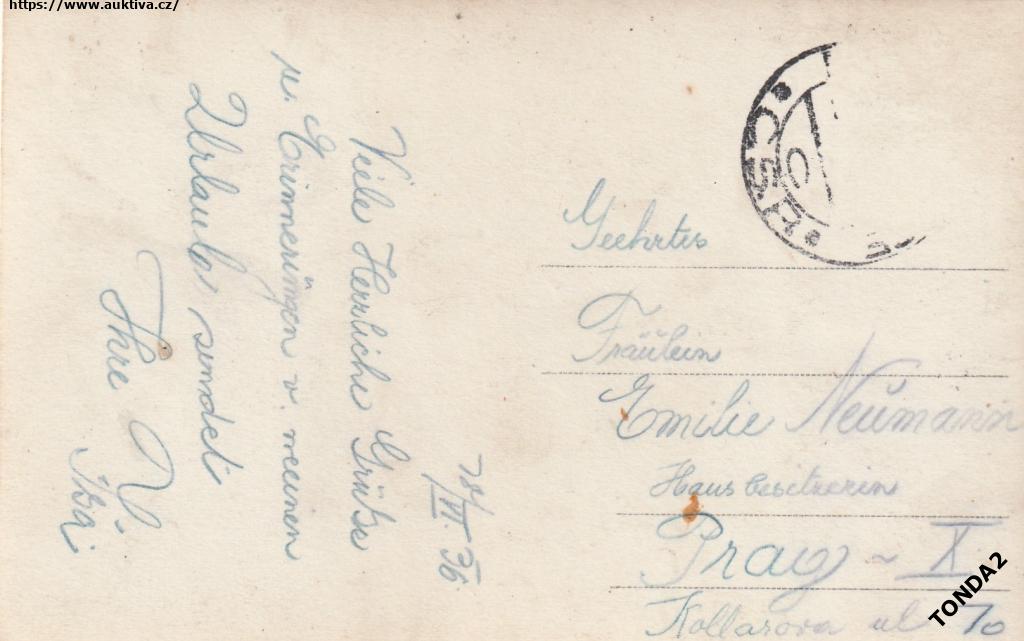 https://www.auktiva.cz/
Viele Herzliche Grüße
u. Erinnerüngen v. meinen
Urlaub, sendet
Ihre
VI. 36
Geehrtes
Fräulein
Emilie Neümann
Hausbesitzerin
Prag - X
Kollarova ul
ČSR
TONDA2